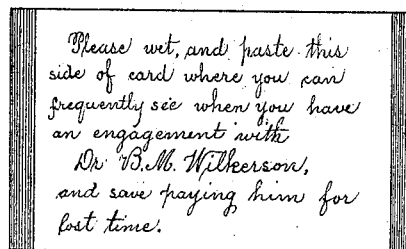 Please wet, and paste this
side of card where you can
frequently see when you have
an engagement with
Dr. B.M. Wilkerson,
and save paying him for
lost time.